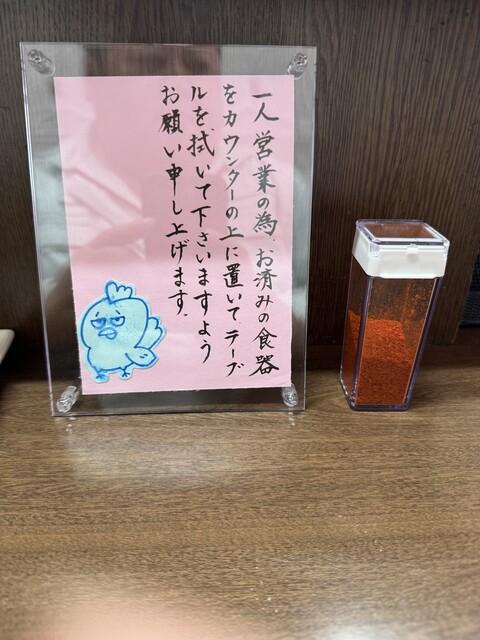 一人営業の為、お済みの食器
をカウンターの上に置いて、テーブ
ルを拭いて下さいますよう
お願い申し上げます。